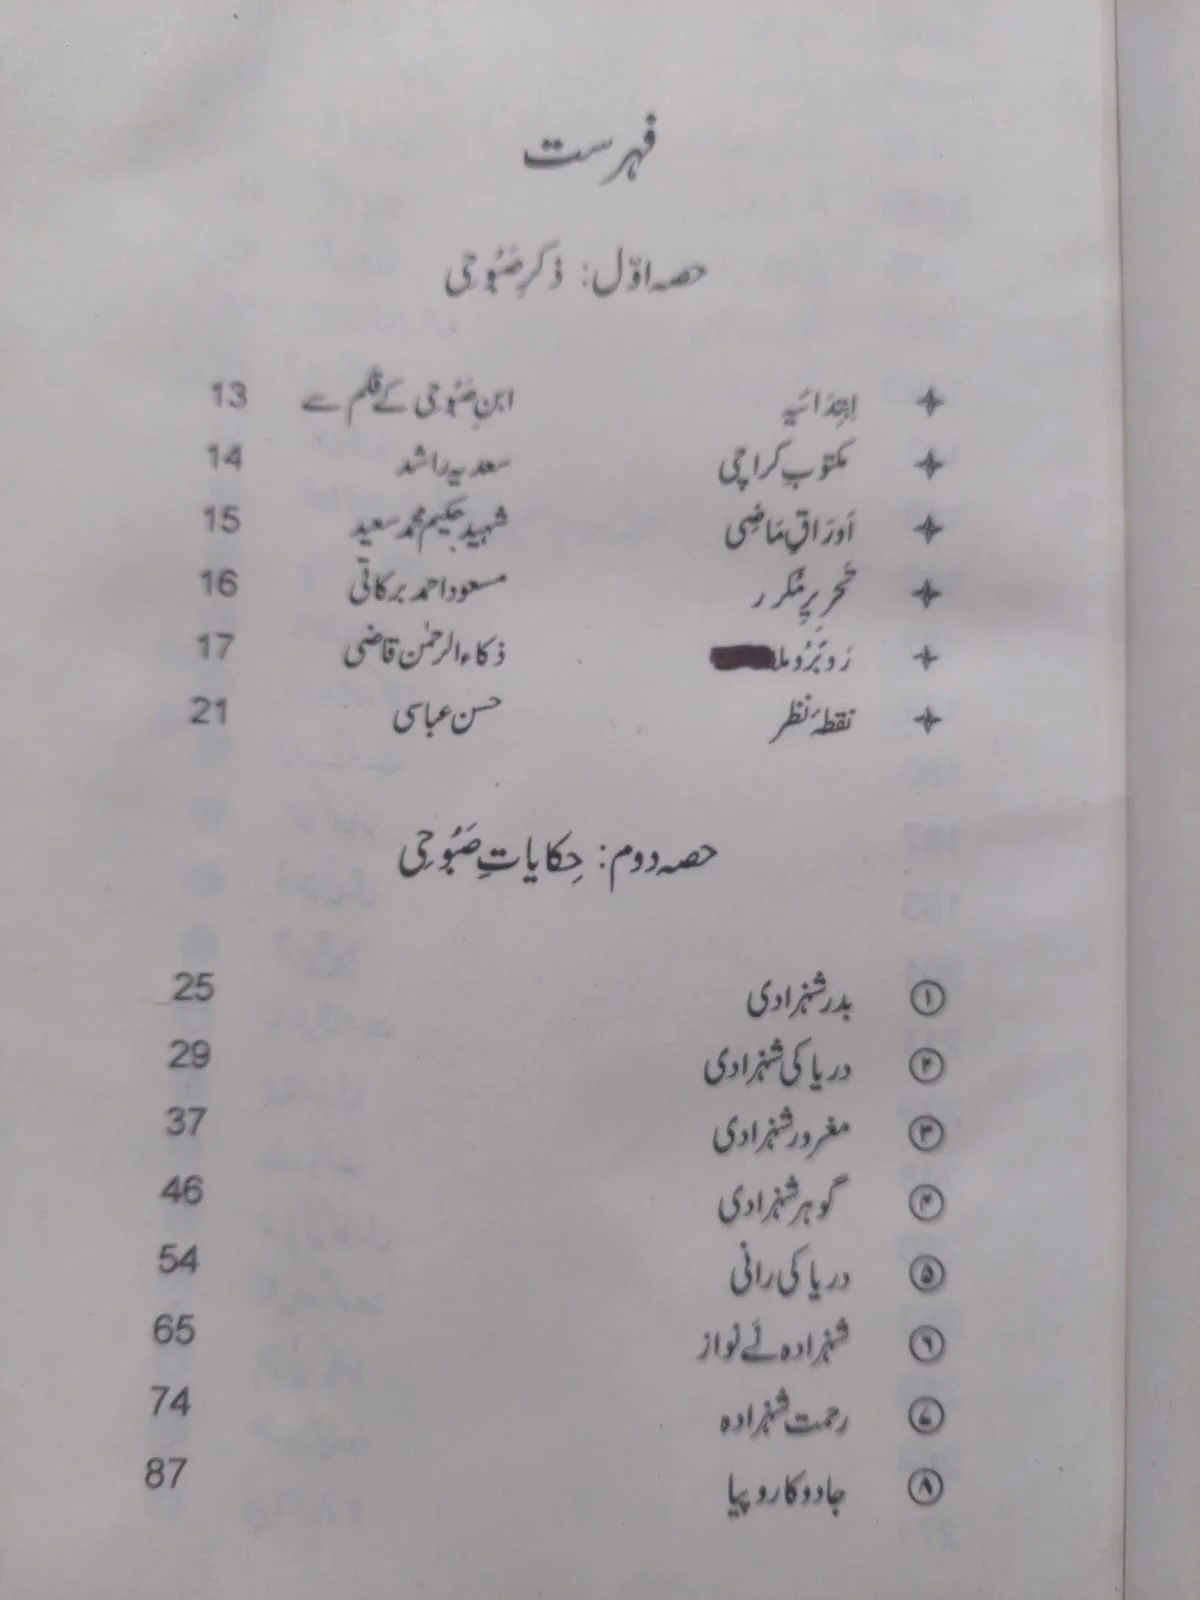 فہرست
حصہ اوّل: ذکرِ صَبُوحِی
✦ اِبتِدَائیہ ابنِ صَبُوحِی کے قلم سے 13
✦ مکتوبِ کراچی سعدیہ راشد 14
✦ اَورَاقِ مَاضِی شہید حکیم محمد سعید 15
✦ تَحریرِ مُکرر مسعود احمد برکاتی 16
✦ رُوبَرُو ذکاء الرحمٰن قاضی 17
✦ نقطۂ نظر حسن عباسی 21
حصہ دوم: حِکایاتِ صَبُوحِی
۱ بدر شہزادی 25
۲ دریا کی شہزادی 29
۳ مغرور شہزادی 37
۴ گوہر شہزادی 46
۵ دریا کی رانی 54
۶ شہزادہ نَے نواز 65
۷ رحمت شہزادہ 74
۸ جادو کا روپیا 87